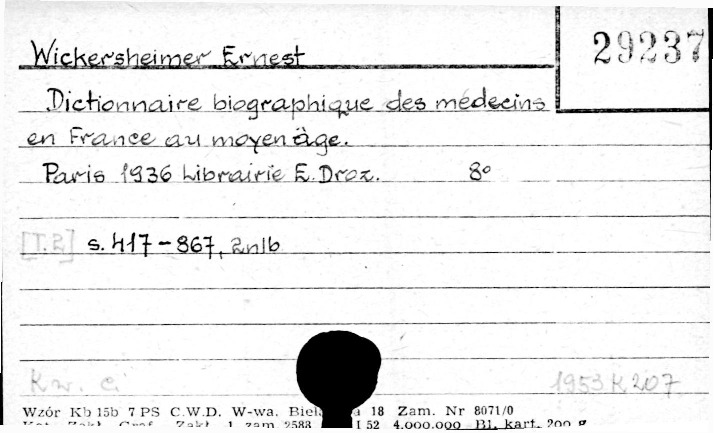 29237
Wickersheimer Ernest
Dictionnaire biographique des médecins
en France au moyen âge.
Paris 1936 Librairie E. Droz. 8°
[T.2] s. 417-867, 2nlb
K. w.
1953 K 207
Wzór Kb 15b 7 PS C.W.D. W-wa. 18 Zam. Nr 8071/0
Zakł. Graf. Zakł. 1 zam. 2583 1 52 4.000.000 Bl. kart. 200 g